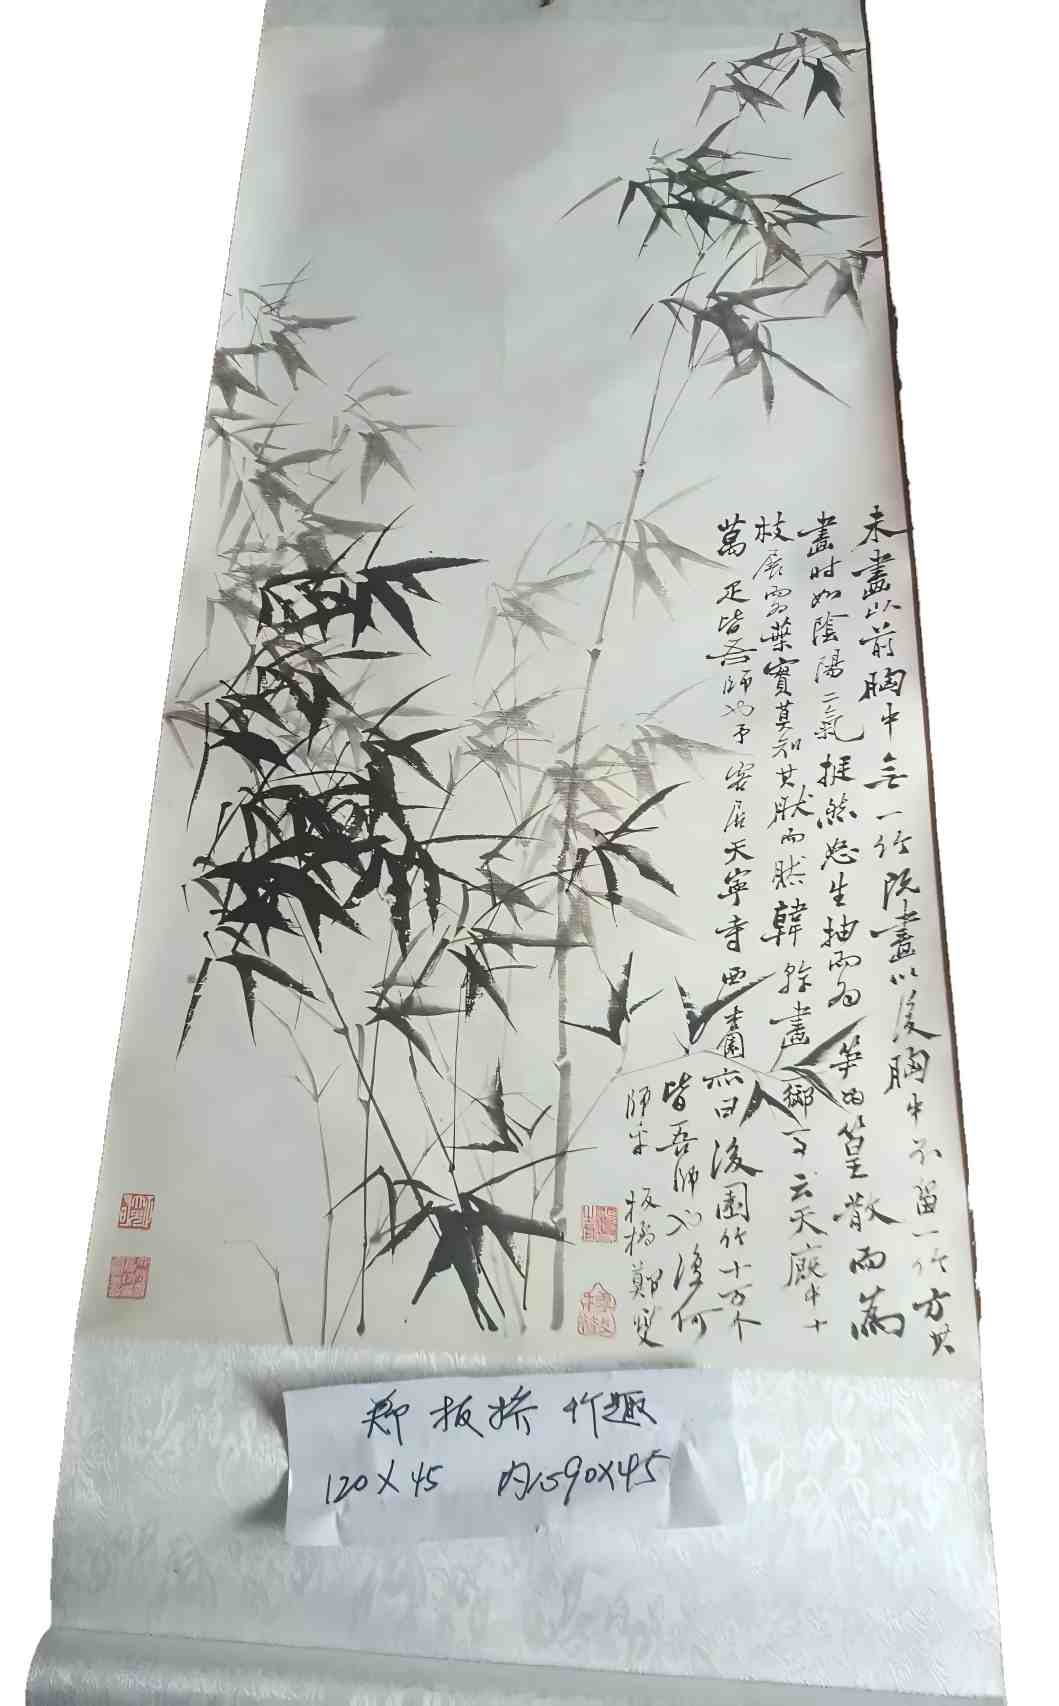 未畫以前胸中無一竹既畫以後胸中不留一竹方其
畫時如陰陽二氣挺然怒生抽而為笋為篁散而為
枝展而為葉實莫知其然而然韓幹畫御馬云天廄中十
萬疋皆吾師也予客居天寧寺西杏園亦曰後園竹十万个
皆吾師也復何
師乎 板橋鄭燮
郑板桥 竹趣
120X45 内心90X45